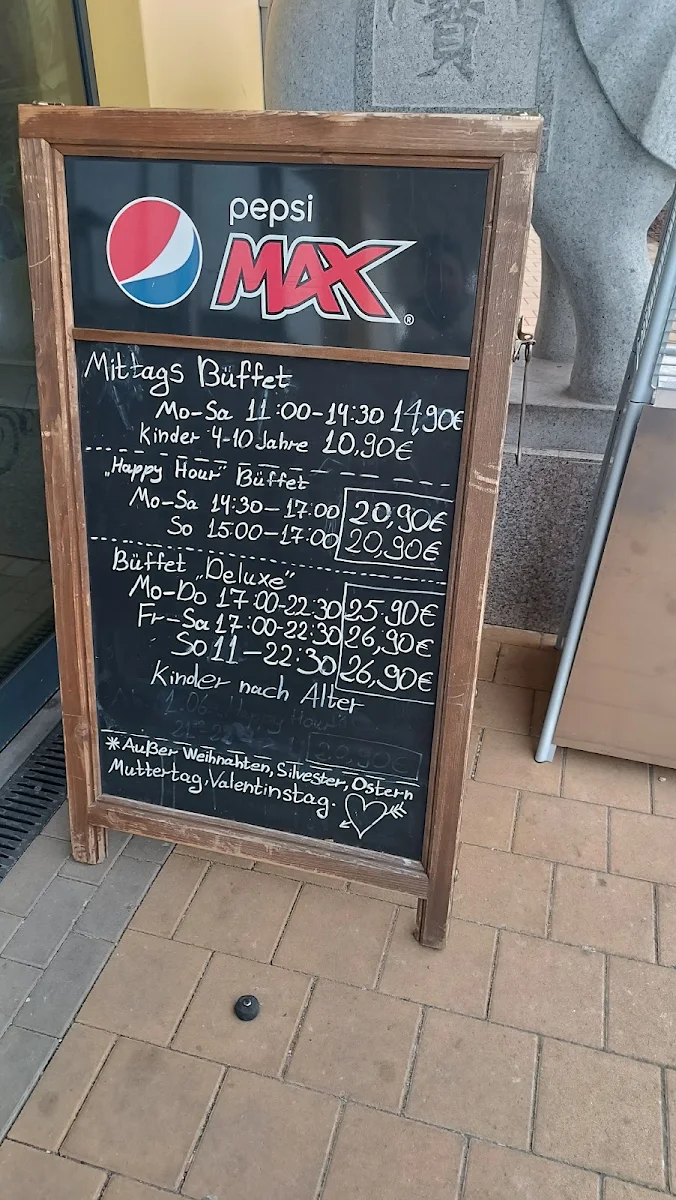 賓
pepsi
MAX®
Mittags Büffet
Mo-Sa 11:00-14:30 14,90€
Kinder 4-10 Jahre 10,90€
„Happy Hour" Büffet
Mo-Sa 14:30-17:00 20,90€
So 15:00-17:00 20,90€
Büffet „Deluxe"
Mo-Do 17:00-22:30 25.90€
Fr-Sa 17:00-22:30 26,90€
So 11-22:30 26,90€
Kinder nach Alter
*Außer Weihnahten, Silvester, Ostern
Muttertag, Valentinstag.